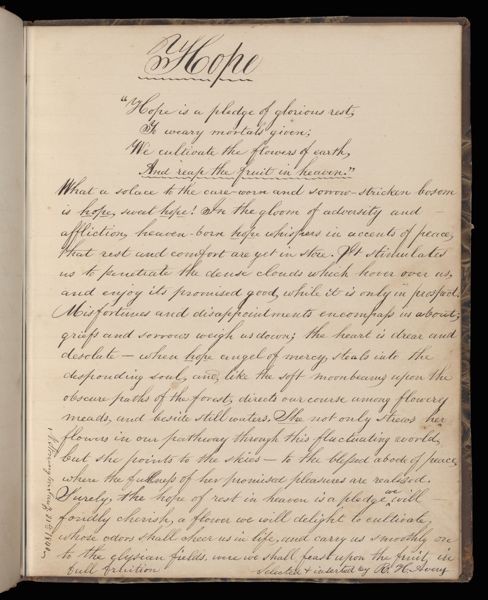 Hope
"Hope is a pledge of glorious rest,
To weary mortals given;
We cultivate the flowers of earth,
And reap the fruit in heaven."
What a solace to the care-worn and sorrow-stricken bosom
is hope, sweet hope! In the gloom of adversity and
affliction, heaven-born hope whispers in accents of peace,
that rest and comfort are yet in store. It stimulates
us to penetrate the dense clouds which hover over us,
and enjoy its promised good, while it is only in prospect.
Misfortunes and disappointments encompass us about;
griefs and sorrows weigh us down; the heart is drear and
desolate — when hope angel of mercy, steals into the
desponding soul, and, like the soft moonbeams upon the
obscure paths of the forest, directs our course among flowery
meads, and beside still waters. She not only strews her
flowers in our pathway through this fluctuating world,
but she points to the skies — to the blessed abode of peace,
where the fullness of her promised pleasures are realized.
Surely, the hope of rest in heaven is a pledge we will
fondly cherish, a flower we will delight to cultivate,
whose odors shall cheer us in life, and carry us smoothly on
to the elysian fields, were we shall feast upon the fruit, in
full fruition
Selected & inserted by R. H. Avery